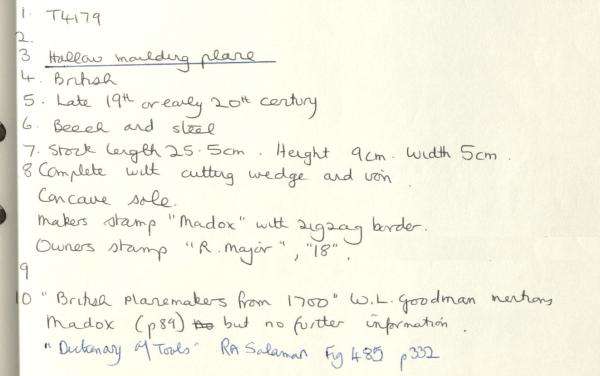 1. T4179
2.
3 Hollow moulding plane
4. British
5. Late 19th or early 20th century
6. Beech and steel
7. Stock length 25.5cm. Height 9cm. Width 5cm.
8 Complete with cutting wedge and iron.
Concave sole.
Makers stamp "Madox" with zigzag border.
Owners stamp "R. Major", "18".
9
10 "British Planemakers from 1700" W.L. Goodman mentions
Madox (p89) but no further information.
"Dictionary of Tools" RA Salaman Fig 485 p332